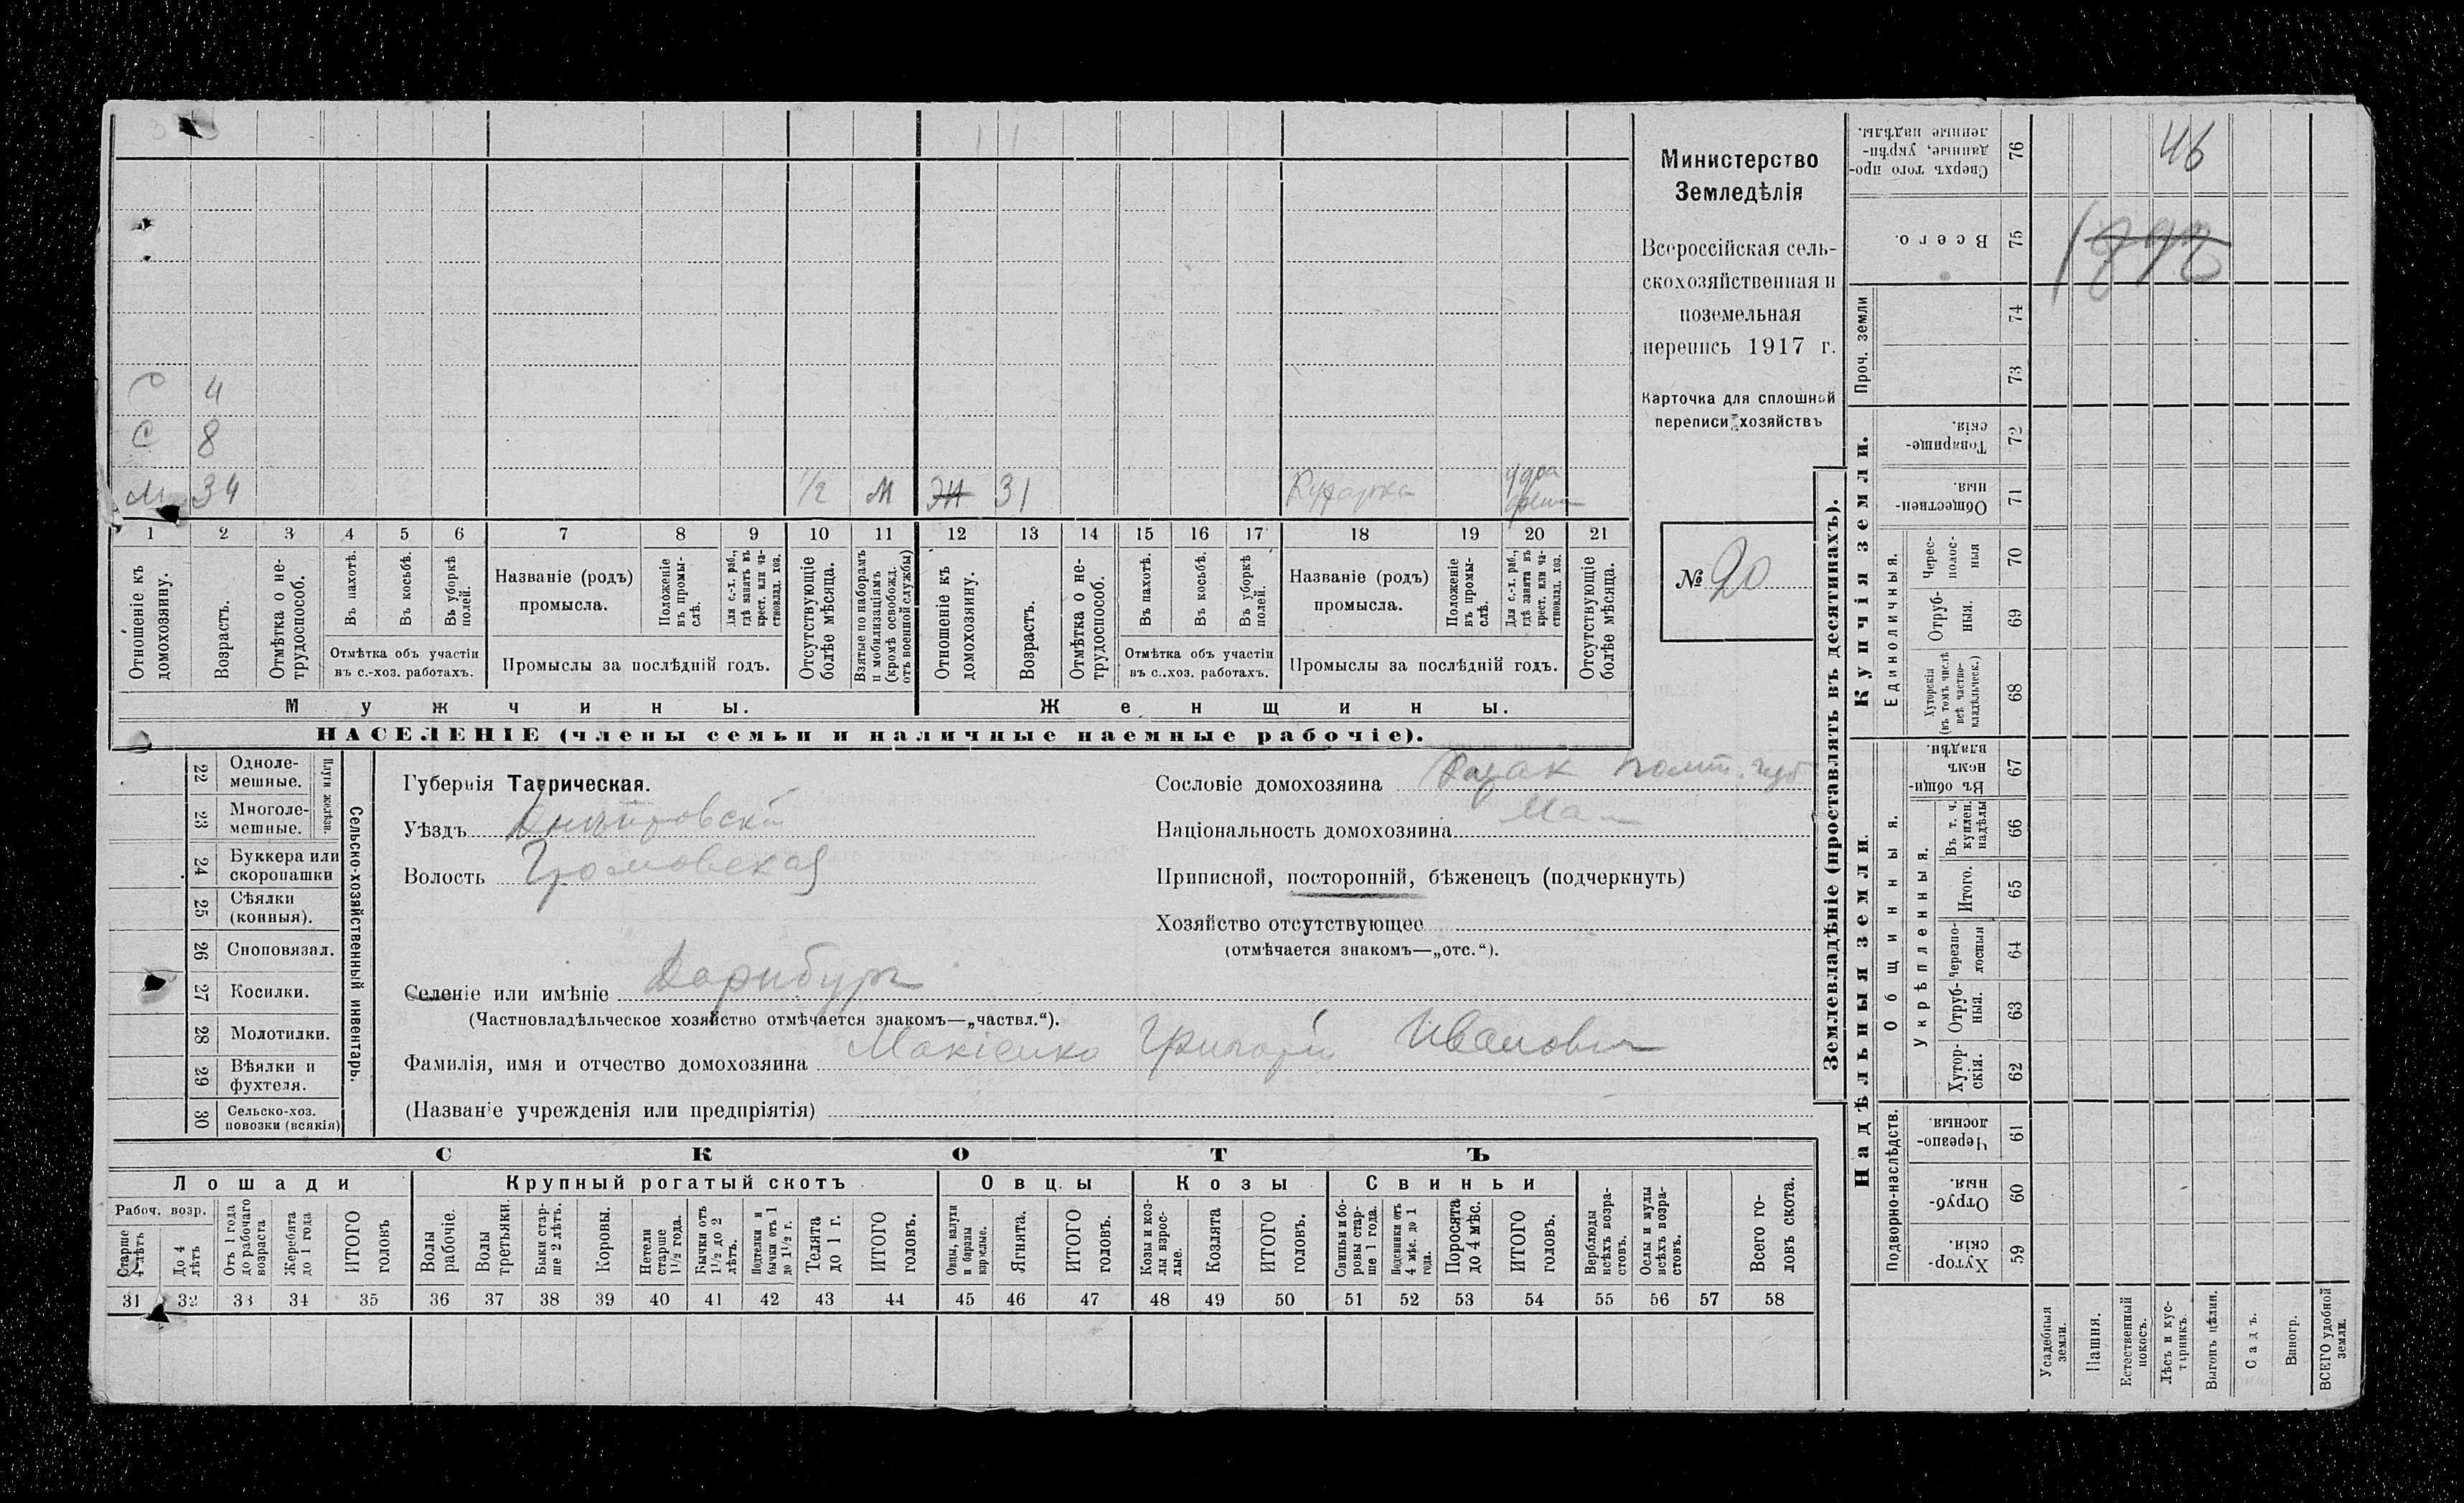 46
Министерство
Земледѣлія
Всероссійская сель-
скохозяйственная и
поземельная
перепись 1917 г.
Карточка для сплошной
переписи хозяйствъ
№ 20
С 4
С 8
М 34 1/2 М 31
1 2 3 4 5 6 7 8 9 10 11 12 13 14 15 16 17 18 19 20 21
Отношеніе къ домохозяину.
Возрастъ.
Отмѣтка о не-трудоспособ.
Въ пахотѣ.
Въ косьбѣ.
Въ уборкѣ полей.
Отмѣтка объ участіи
въ с.-хоз. работахъ.
Названіе (родъ)
промысла.
Положеніе въ промы-слѣ.
Для с.-х. раб., гдѣ занятъ въ крест. или ча-стновлад. хоз.
Промыслы за послѣдній годъ.
Отсутствующіе болѣе мѣсяца.
Взятые по наборамъ и мобилизаціямъ (кромѣ освобожд. отъ военной службы)
Отношеніе къ домохозяину.
Возрастъ.
Отмѣтка о не-трудоспособ.
Въ пахотѣ.
Въ косьбѣ.
Въ уборкѣ полей.
Отмѣтка объ участіи
въ с..хоз. работахъ.
Названіе (родъ)
промысла.
Положеніе въ промы-слѣ.
Для с.-х. раб., гдѣ занята въ крест. или ча-стновлад. хоз.
Промыслы за послѣдній годъ.
Отсутствующіе болѣе мѣсяца.
Мужчины. Женщины.
НАСЕЛЕНІЕ (члены семьи и наличные наемные рабочіе).
22 Одноле-мешные.
23 Многоле-мешные.
Плуги желѣзн.
24 Буккера или скоропашки
25 Сѣялки (конныя).
26 Сноповязал.
27 Косилки.
28 Молотилки.
29 Вѣялки и фухтеля.
30 Сельско-хоз. повозки (всякія)
Сельско-хозяйственный инвентарь.
Губернія Таврическая.
Уѣздъ Днѣпровскій
Волость Громовская
Селеніе или имѣніе Дорнбургъ
(Частновладѣльческое хозяйство отмѣчается знакомъ—„частвл.“).
Фамилія, имя и отчество домохозяина Макіенко Григорій Ивановичъ
(Названіе учрежденія или предпріятія)
Сословіе домохозяина Козак Полт. губ
Національность домохозяина Мал
Приписной, посторонній, бѣженецъ (подчеркнуть)
Хозяйство отсутствующее
(отмѣчается знакомъ—„отс.“).
СКОТЪ
Лошади Крупный рогатый скотъ Овцы Козы Свиньи
Рабоч. возр.
Старше 4 лѣтъ
До 4 лѣтъ
Отъ 1 года до рабочаго возраста
Жеребята до 1 года
ИТОГО головъ
Волы рабочіе.
Волы третьяки.
Быки стар-ше 2 лѣтъ.
Коровы.
Нетели старше 1½ года.
Бычки отъ 1½ до 2 лѣтъ.
Подтелки и бычки отъ 1 до 1½ г.
Телята до 1 г.
ИТОГО головъ.
Овцы, валухи и бараны взрослые.
Ягнята.
ИТОГО головъ.
Козы и коз-лы взрос-лые.
Козлята
ИТОГО головъ.
Свиньи и бо-ровы стар-ше 1 года.
Подсвинки отъ 4 мѣс. до 1 года.
Поросята до 4 мѣс.
ИТОГО головъ.
Верблюды всѣхъ возра-стовъ.
Ослы и мулы всѣхъ возра-стовъ.
Всего го-ловъ скота.
31 32 33 34 35 36 37 38 39 40 41 42 43 44 45 46 47 48 49 50 51 52 53 54 55 56 57 58
Землевладѣніе (проставлять въ десятинахъ).
Купчія земли.
Надѣльныя земли.
76 Сверхъ того про-данные, укрѣп-ленные надѣлы.
75 Всего.
Проч. земли
74
73
72 Товарище-скія.
71 Обществен-ныя.
Единоличныя.
70 Черес-полос-ныя
69 Отруб-ныя.
68 Хуторскія (въ томъ числѣ всѣ частно-владѣльческ.)
Общинныя.
67 Въ общи-номъ владѣн.
Укрѣпленныя.
66 Въ т. ч. куплен. надѣлы
65 Итого.
64 Черезпо-лосныя
63 Отруб-ныя.
62 Хутор-скія.
Подворно-наслѣдств.
61 Черезпо-лосныя.
60 Отруб-ныя.
59 Хутор-скія.
Усадебныя земли.
Пашня.
Естественный покосъ.
Лѣсъ и кус-тарникъ.
Выгонъ цѣлин.
Садъ.
Виногр.
ВСЕГО удобной земли.